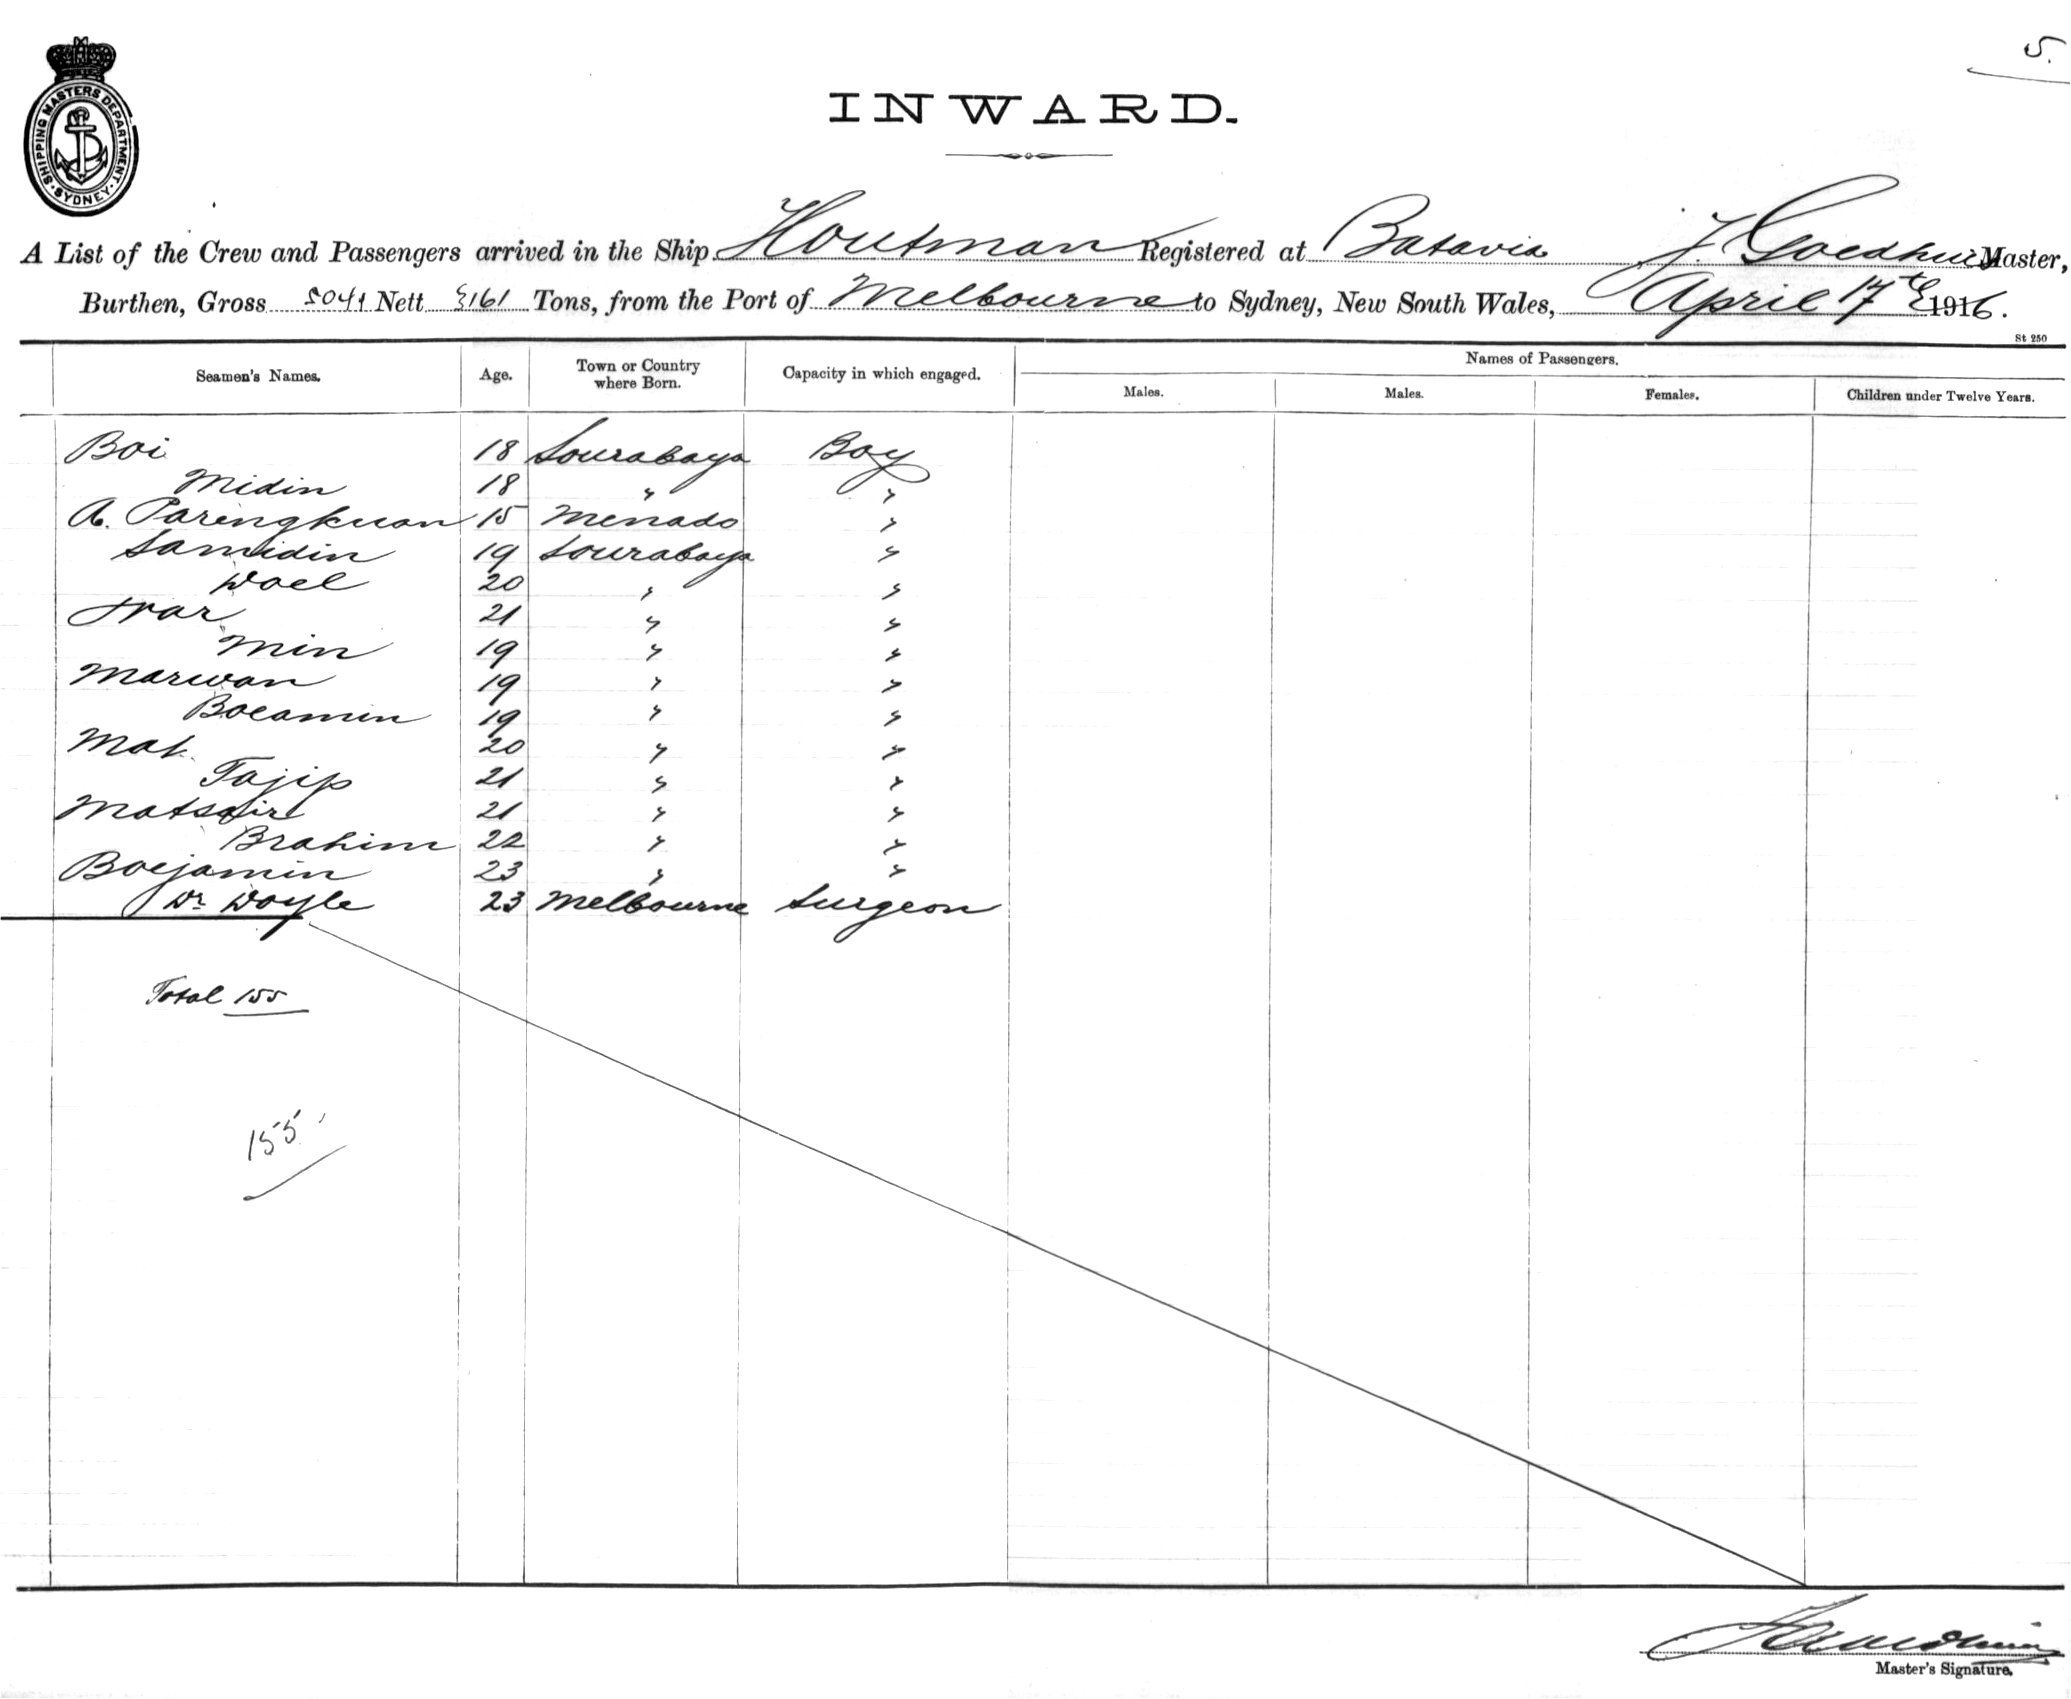 5.
SHIPPING MASTERS DEPARTMENT. SYDNEY
INWARD.
A List of the Crew and Passengers arrived in the Ship Houtman Registered at Batavia J. Goedhuis Master,
Burthen, Gross 5041 Nett 3161 Tons, from the Port of Melbourne to Sydney, New South Wales, April 17 1916.
St 250
Seamen's Names. Age. Town or Country where Born. Capacity in which engaged. Names of Passengers.
Males. Males. Females. Children under Twelve Years.
Boi 18 Sourabaya Boy
Midin 18 " "
A. Parengkuan 15 Menado "
Samidin 19 Sourabaya "
Wael 20 " "
21 " "
Min 19 " "
Marwan 19 " "
Boeamin 19 " "
Mat 20 " "
Tajip 21 " "
Matsair 21 " "
Brahim 22 " "
Boejamin 23 " "
Dr Doyle 23 Melbourne Surgeon
Total 155
155
Master's Signature.